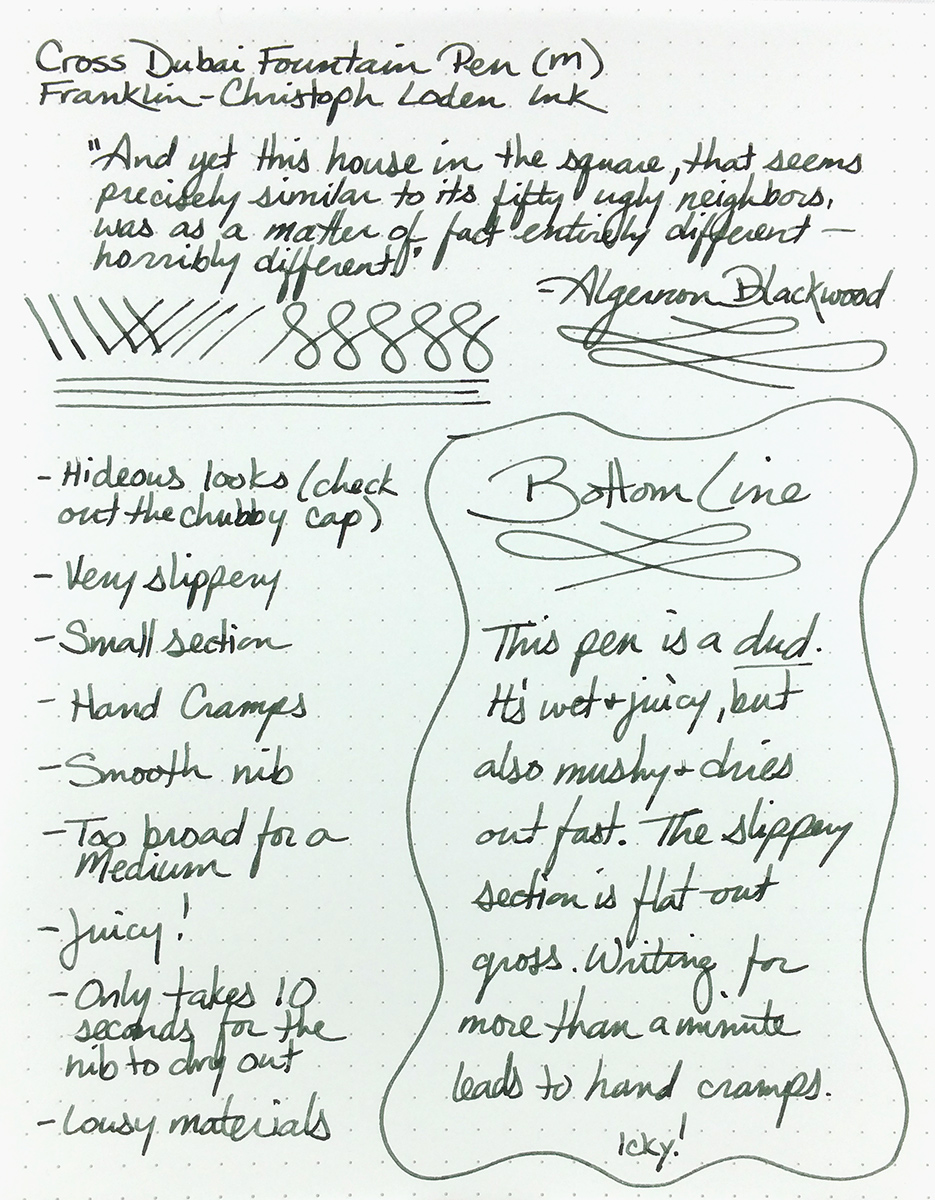 Cross Dubai Fountain Pen (M)
Franklin-Christoph Loden Ink
"And yet this house in the square, that seems
precisely similar to its fifty ugly neighbors,
was as a matter of fact entirely different —
horribly different."
- Algernon Blackwood
- Hideous looks (check
out the chubby cap)
- Very slippery
- Small section
- Hand Cramps
- Smooth nib
- Too broad for a
Medium
- Juicy!
- Only takes 10
seconds for the
nib to dry out
- Lousy materials
Bottom Line
This pen is a dud.
It's wet + juicy, but
also mushy + dries
out fast. The slippery
section is flat out
gross. Writing for
more than a minute
leads to hand cramps.
Icky!